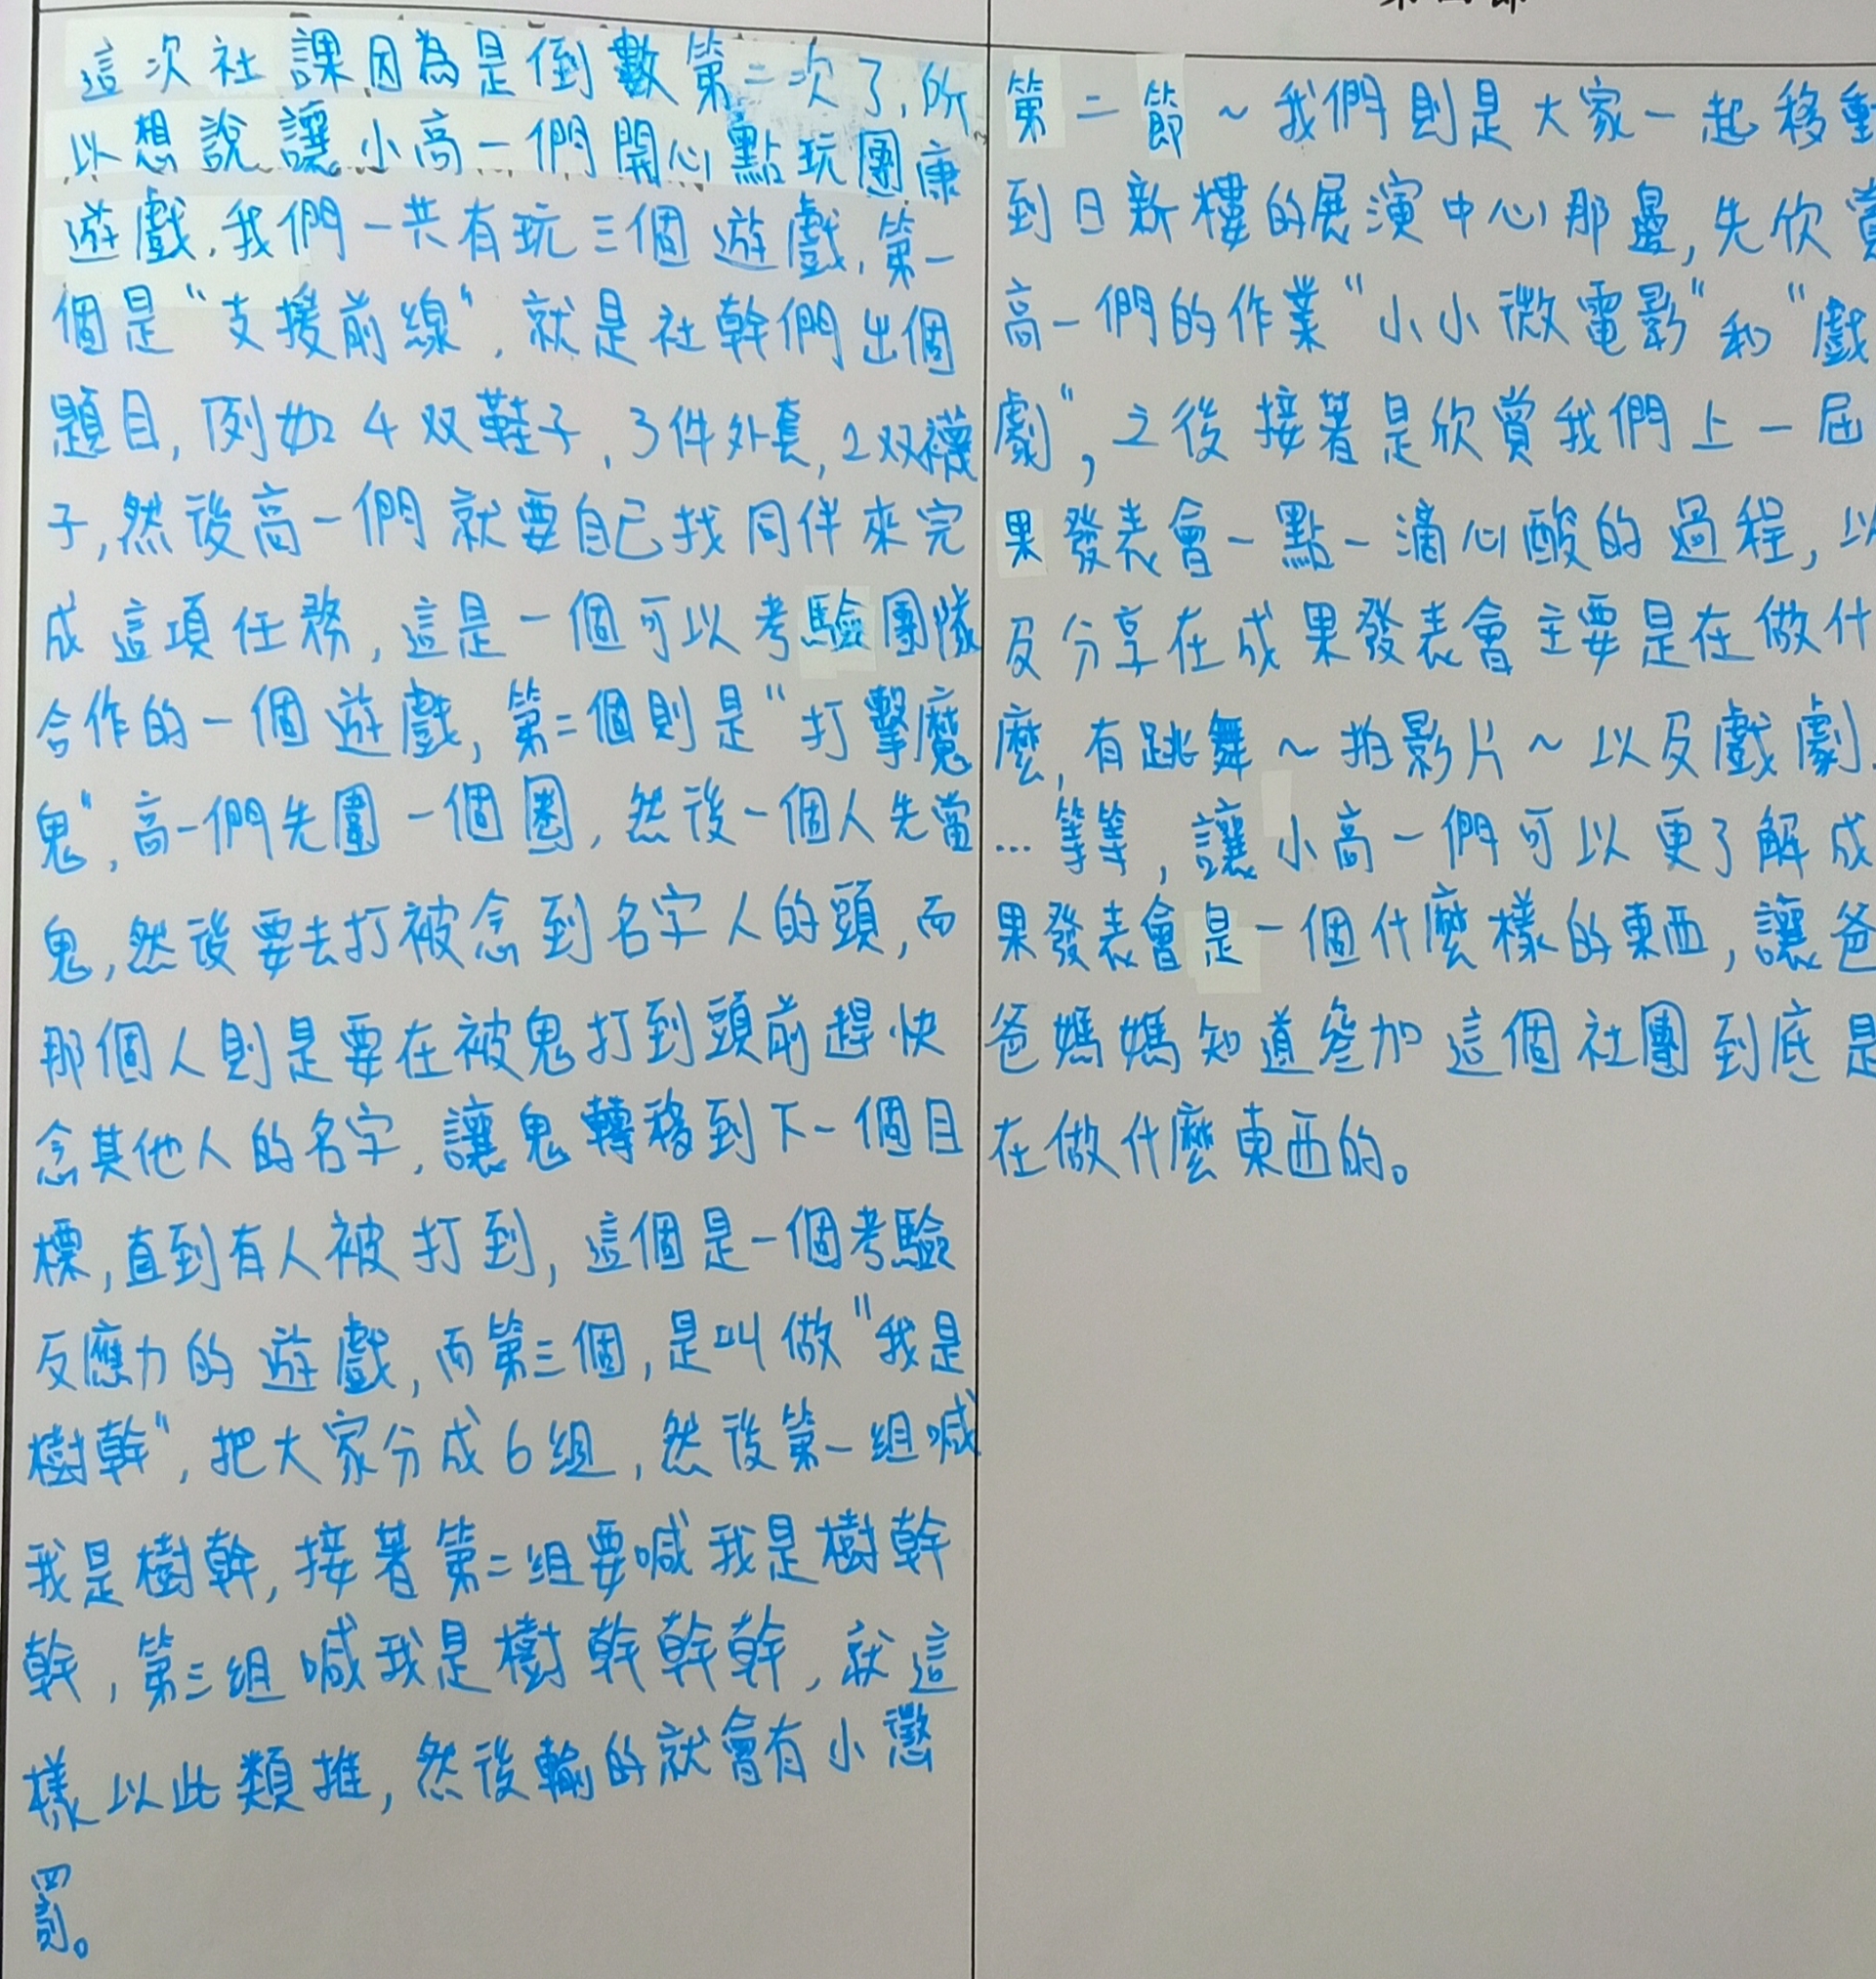 這次社課因為是倒數第二次了,所
以想說讓小高一們開心點玩團康
遊戲,我們一共有玩三個遊戲,第一
個是“支援前線“,就是社幹們出個
題目,例如4双鞋子,3件外套,2双襪
子,然後高一們就要自己找同伴來完
成這項任務,這是一個可以考驗團隊
合作的一個遊戲,第二個則是“打擊魔
鬼“,高一們先圍一個圈,然後一個人先當
鬼,然後要去打被念到名字人的頭,而
那個人則是要在被鬼打到頭前趕快
念其他人的名字,讓鬼轉移到下一個目
標,直到有人被打到,這個是一個考驗
反應力的遊戲,而第三個,是叫做“我是
樹幹“,把大家分成6組,然後第一組喊
我是樹幹,接著第二組要喊我是樹幹
幹,第三組喊我是樹幹幹幹,就這
樣以此類推,然後輸的就會有小懲
罰。
第二節~我們則是大家一起移動
到日新樓的展演中心那邊,先欣賞
高一們的作業“小小微電影“和“戲
劇“,之後接著是欣賞我們上一屆
果發表會一點一滴心酸的過程,以
及分享在成果發表會主要是在做什
麼,有跳舞~拍影片~以及戲劇.
…等等,讓小高一們可以更了解成
果發表會是一個什麼樣的東西,讓爸
爸媽媽知道參加這個社團到底是
在做什麼東西的。